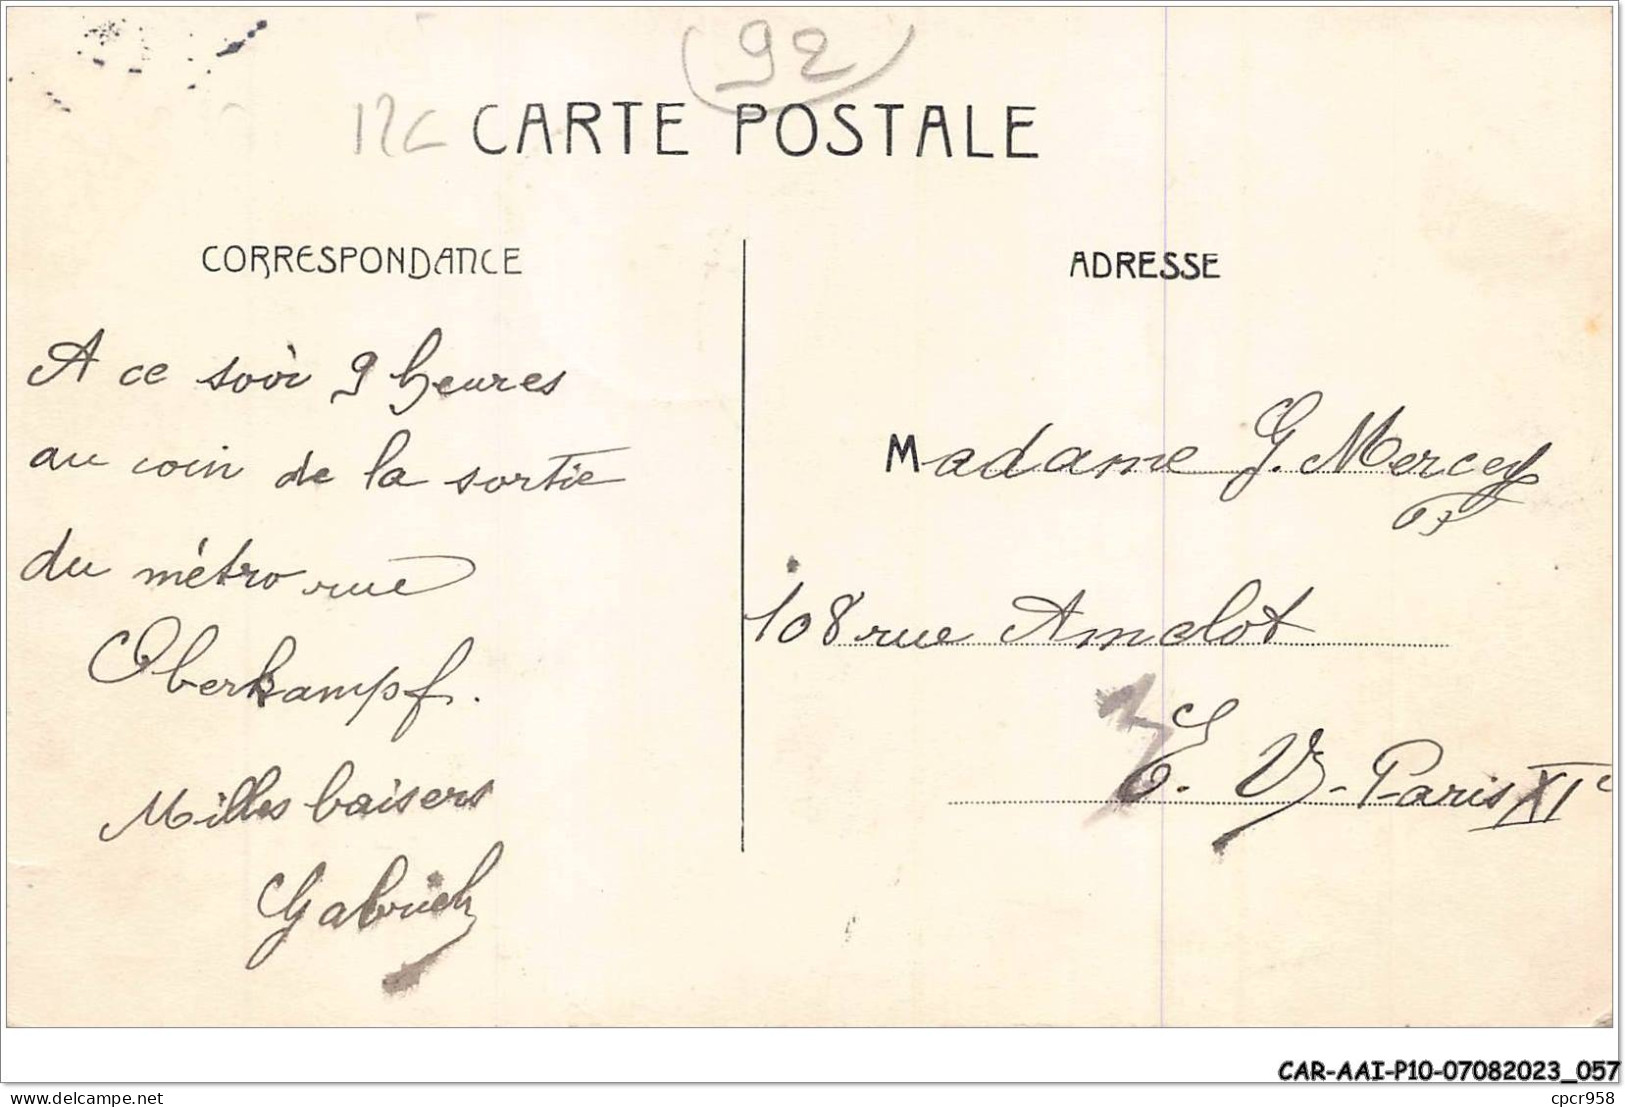 (92)
12C CARTE POSTALE
CORRESPONDANCE
A ce soir 9 heures
au coin de la sortie
du métro rue
Oberkampf.
Milles baisers
Gabriel
ADRESSE
Madame G. Mercey
108 rue Amelot
E. V. - Paris XIe
CAR-AAI-P10-07082023_057
delcampe.net
cpcr958